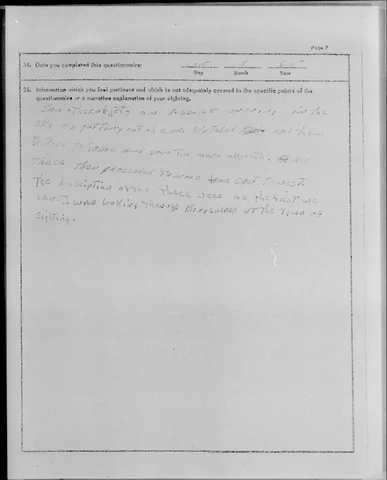 Page 7
34. Date you completed this questionnaire:
Day Month Year
35. Information which you feel pertinent and which is not adequately covered in the specific points of the
questionnaire or a narrative explanation of your sighting.
Saw the objets moving in the
sky no pattern out of and then
and saw two more objects. all
three then proceeded towards East to west.
The discription of the three were as the first we
saw. I was looking through Binoculars at the time of
sighting.